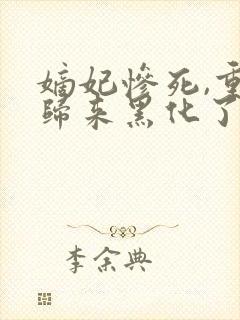 嫡妃惨死,重
归来黑化了
李余典